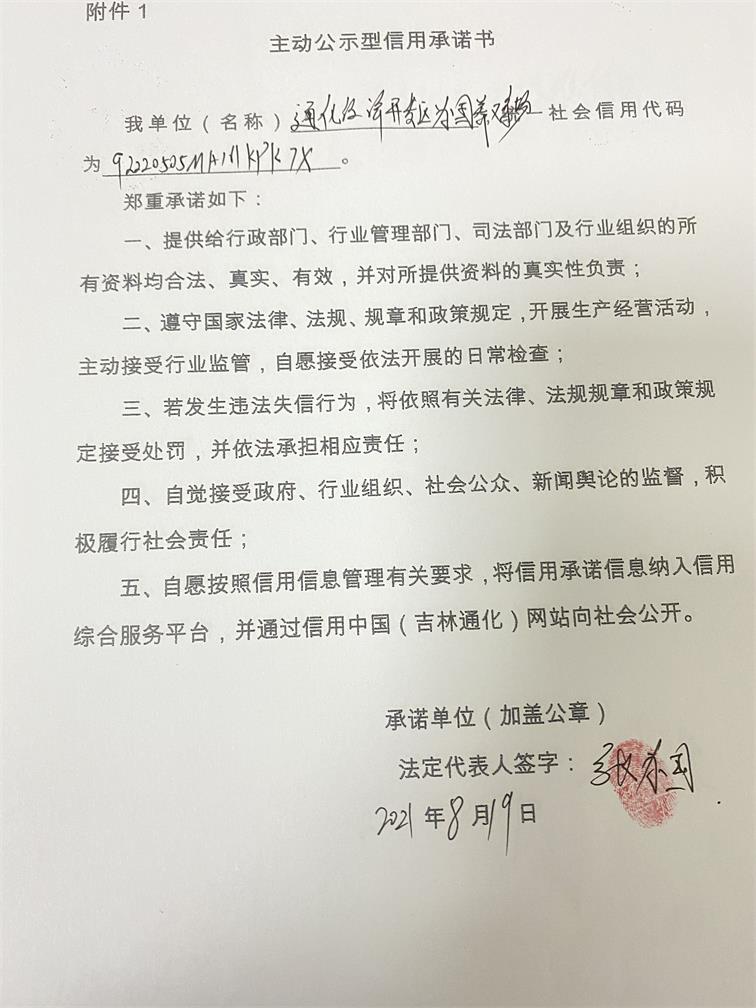 附件1
主动公示型信用承诺书
我单位（名称）通化经济开发区为国养殖场 社会信用代码
为92220505MA1 KPK7X。
郑重承诺如下：
一、提供给行政部门、行业管理部门、司法部门及行业组织的所
有资料均合法、真实、有效，并对所提供资料的真实性负责；
二、遵守国家法律、法规、规章和政策规定，开展生产经营活动，
主动接受行业监管，自愿接受依法开展的日常检查；
三、若发生违法失信行为，将依照有关法律、法规规章和政策规
定接受处罚，并依法承担相应责任；
四、自觉接受政府、行业组织、社会公众、新闻舆论的监督，积
极履行社会责任；
五、自愿按照信用信息管理有关要求，将信用承诺信息纳入信用
综合服务平台，并通过信用中国（吉林通化）网站向社会公开。
承诺单位（加盖公章）
法定代表人签字：
2021年8月19日